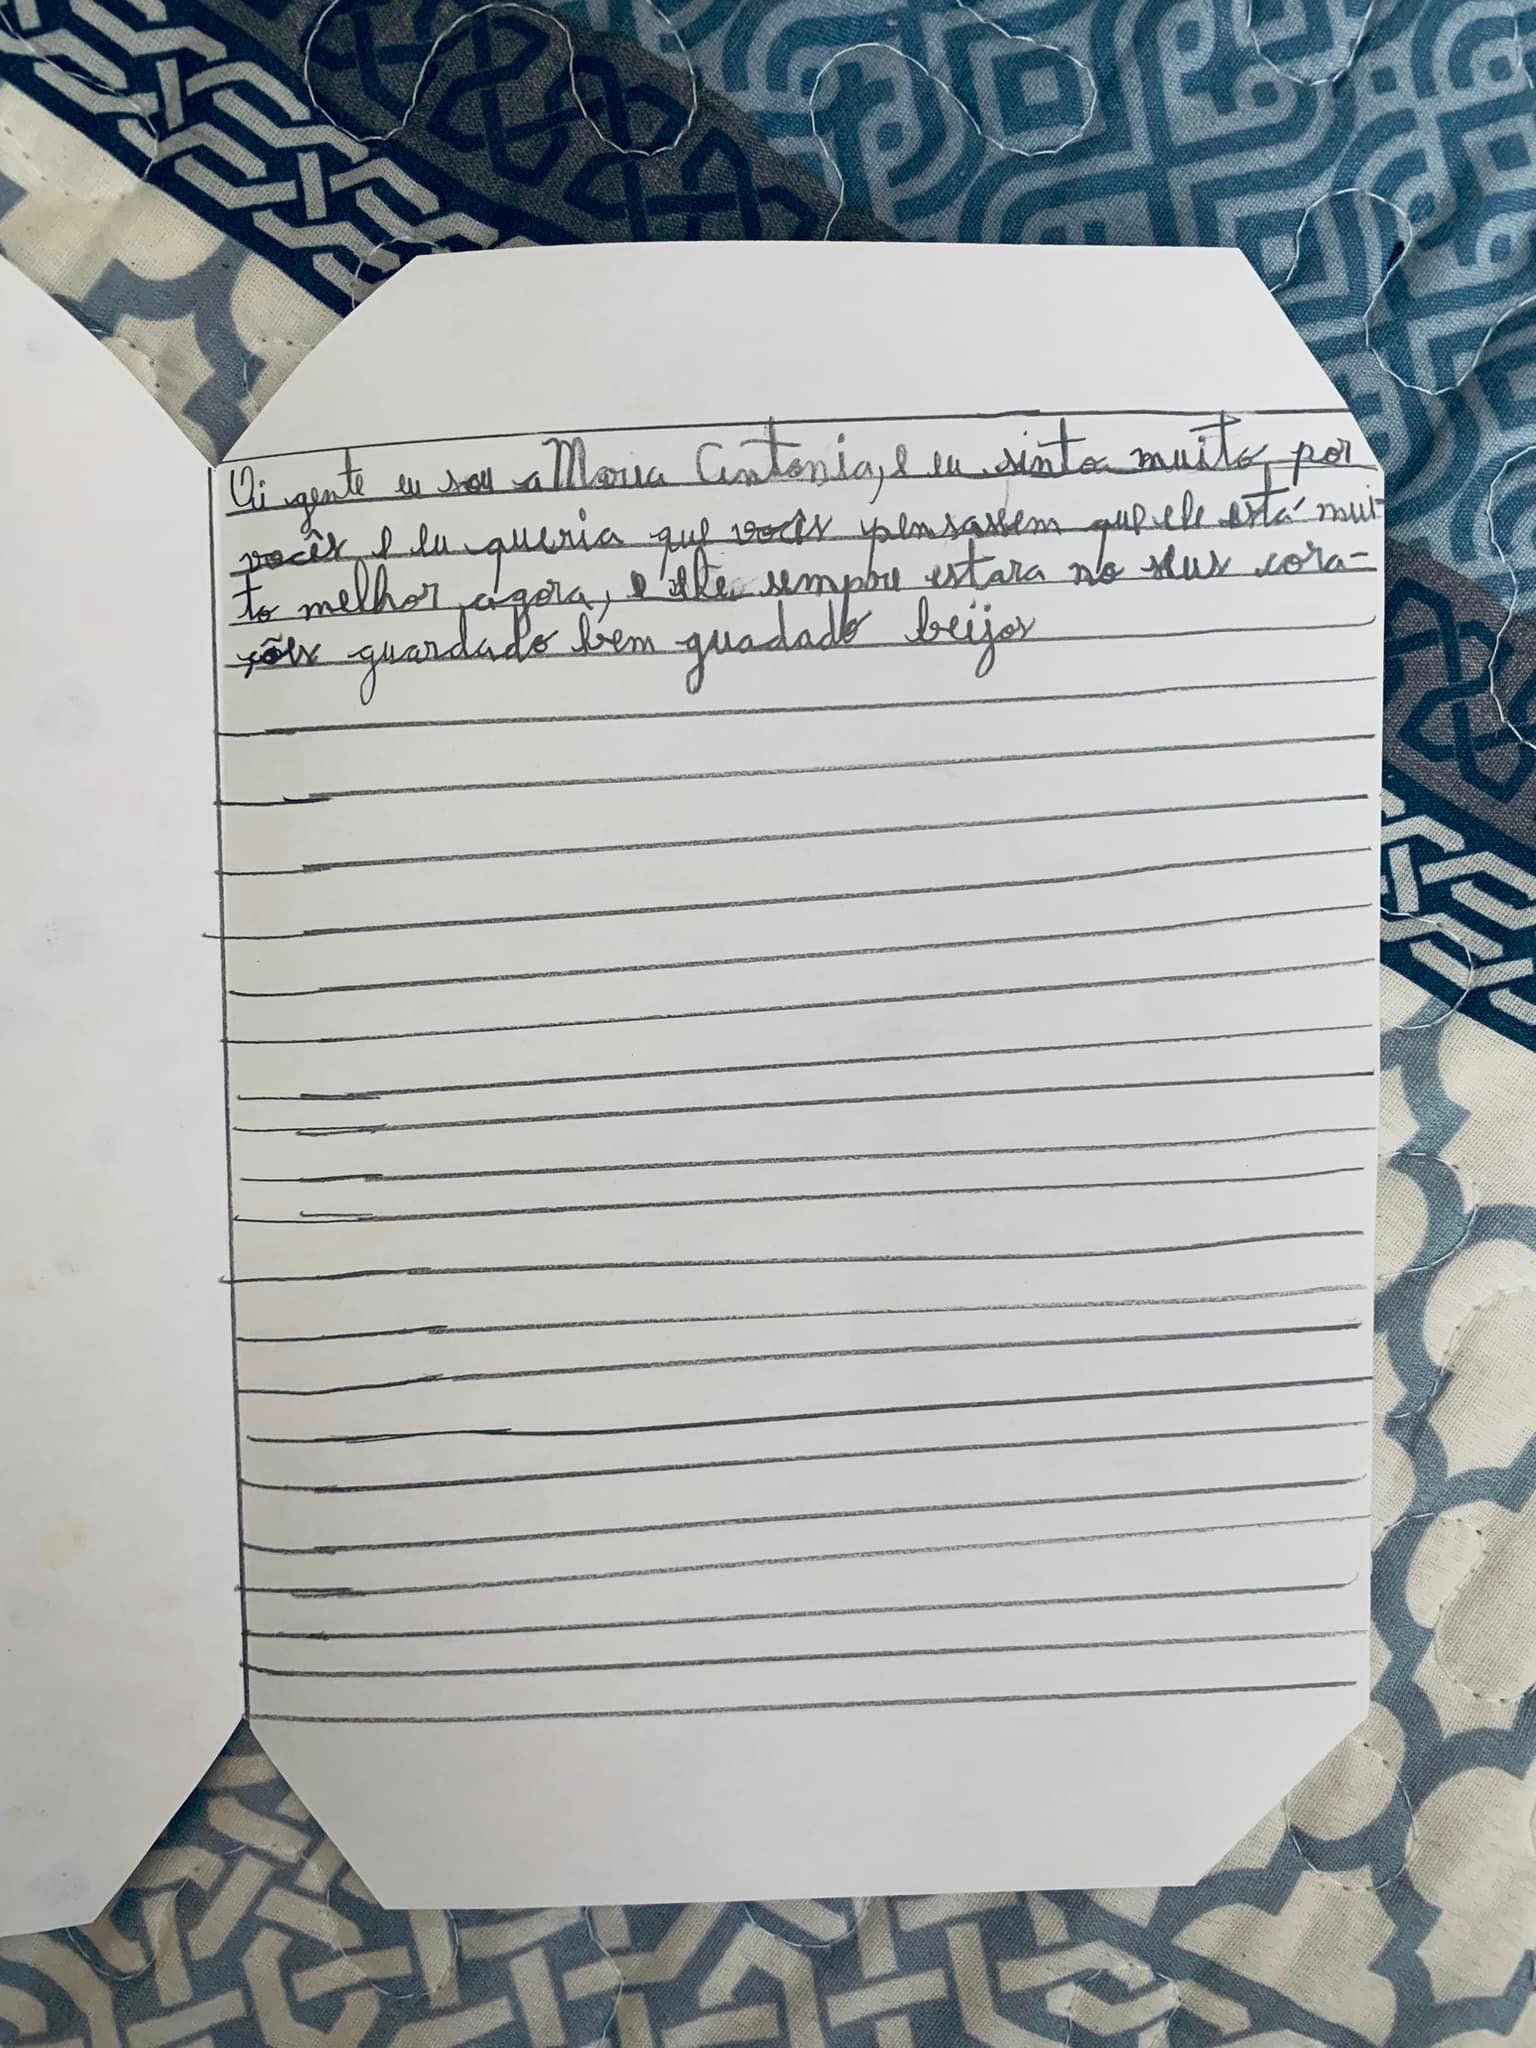 Oi gente eu sou a Maria Antonia, e eu sinto muito por
vocês, e eu queria que vocês pensassem que ele está mui-
to melhor agora, e ele sempre estara no seus cora-
ções guardado bem guadado beijos